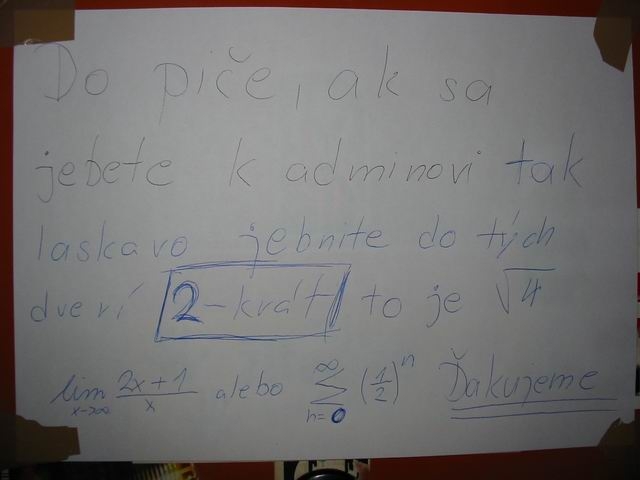 Do piče, ak sa
jebete k adminovi tak
laskavo jebnite do tých
dverí 2-krát to je √4
lim x→∞ (2x+1)/x alebo ∑ n=0 ∞ (1/2)^n Ďakujeme